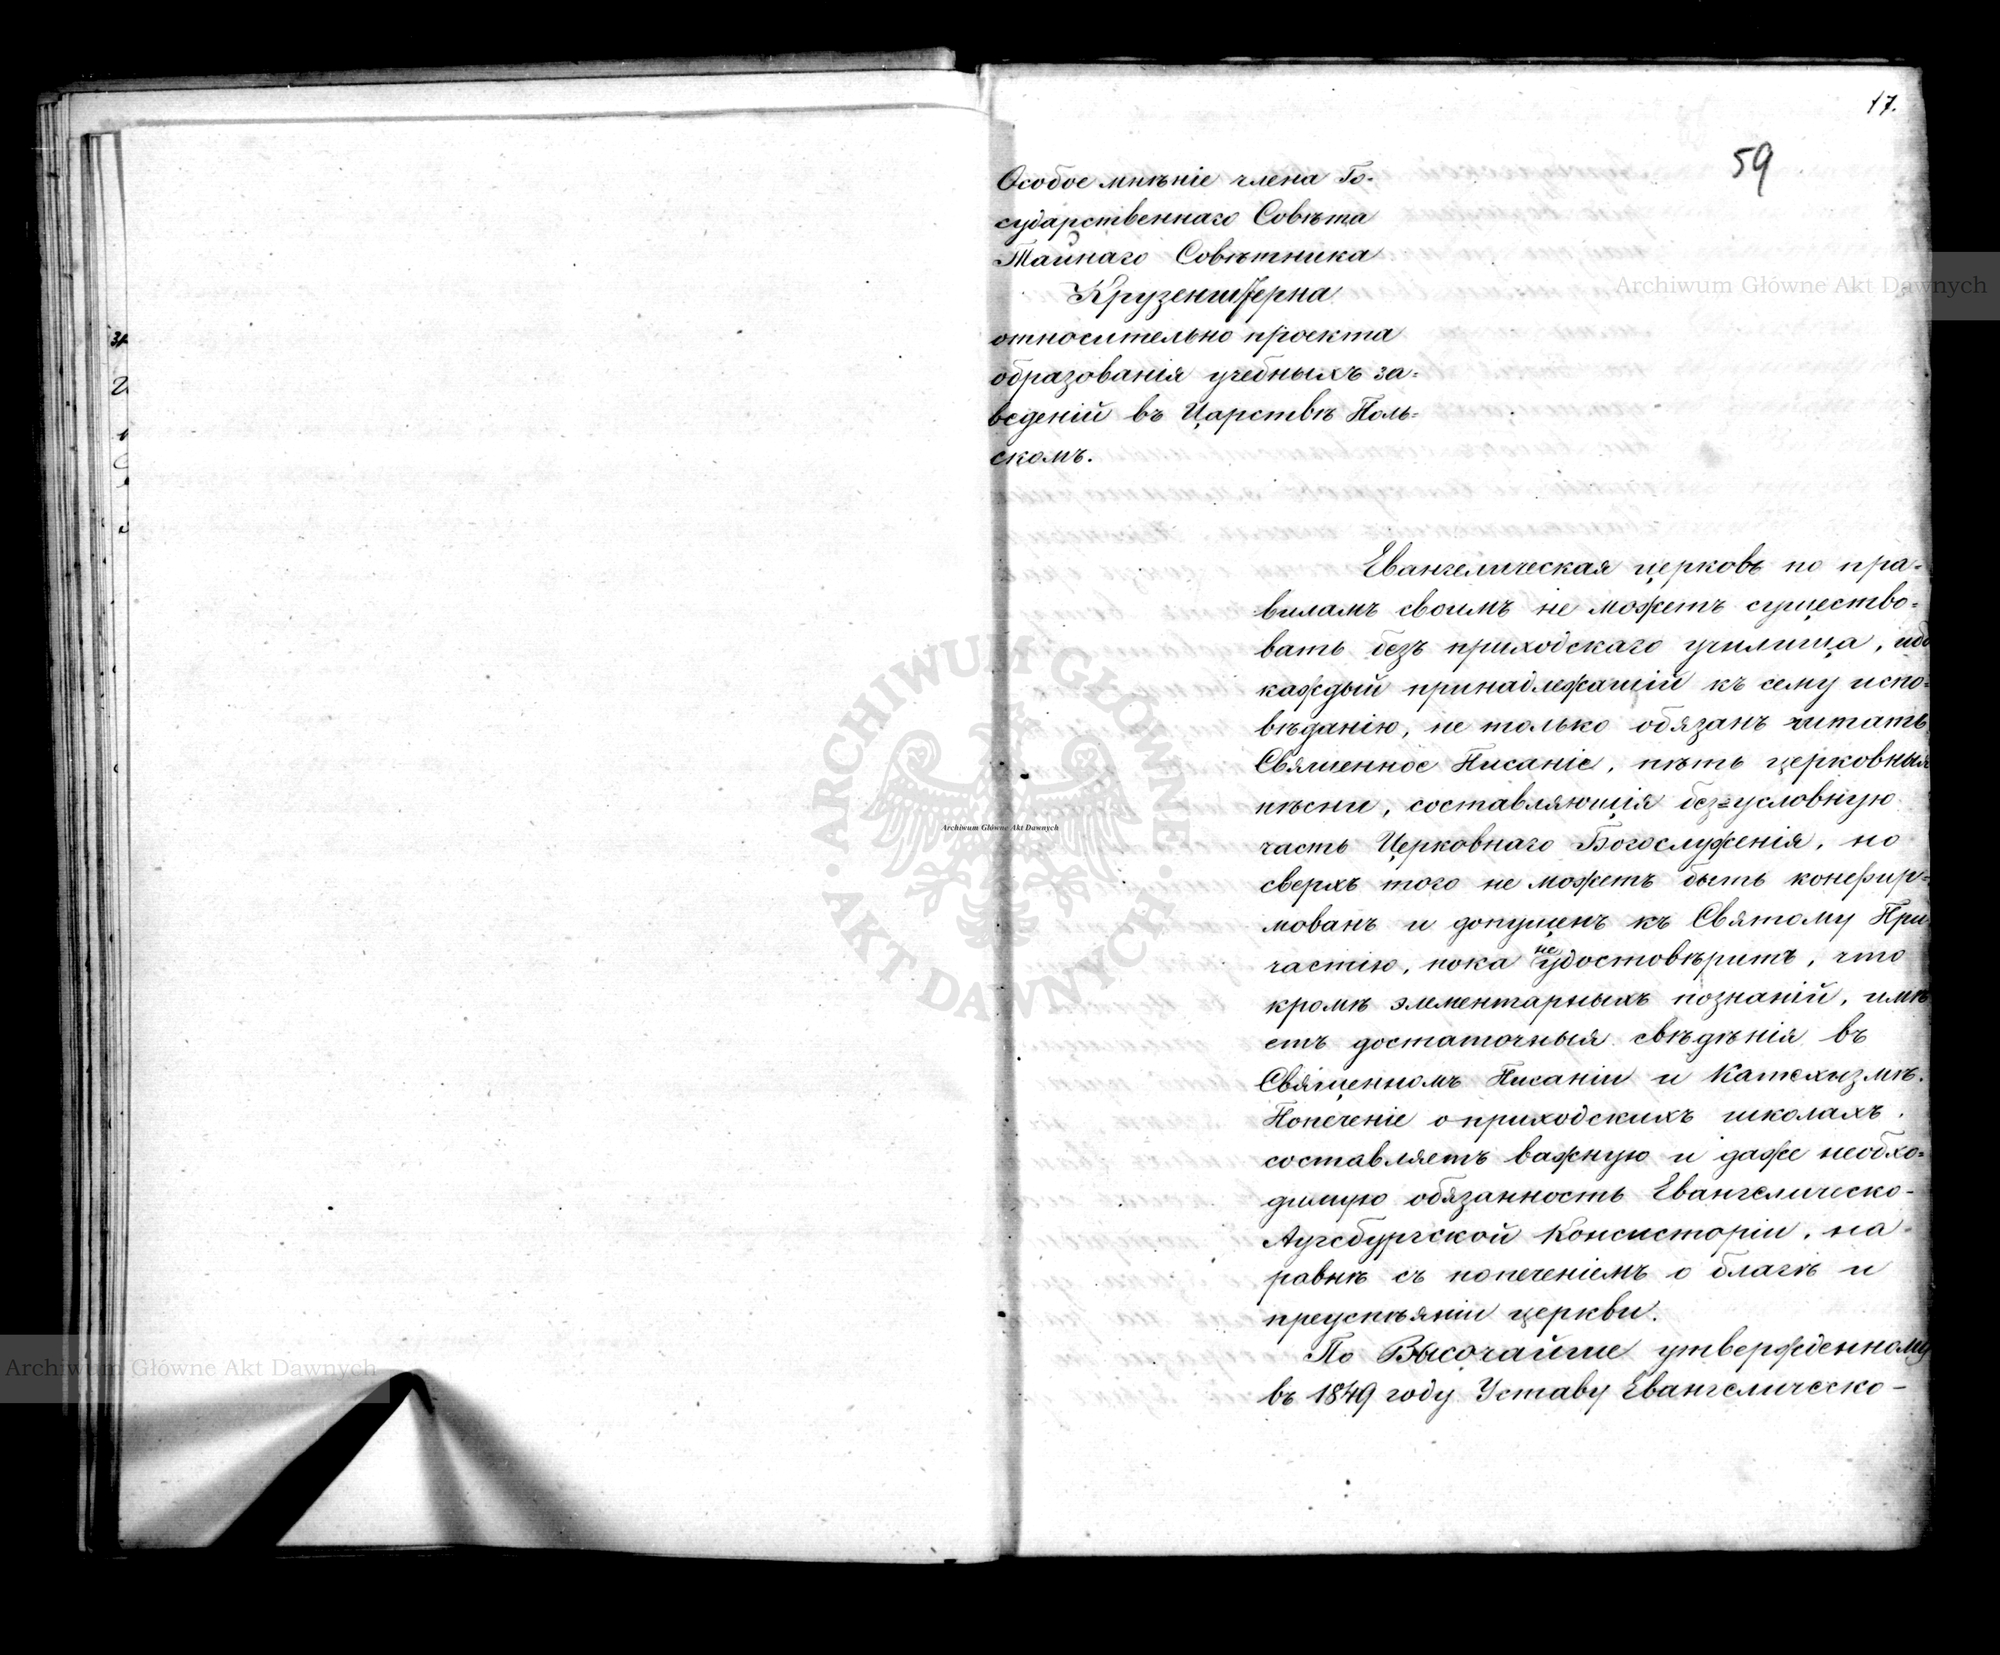 17.
59
Особое мнѣніе члена Го-
сударственнаго Совѣта
Тайнаго Совѣтника
Крузенштерна
относительно проекта
образованія учебныхъ за-
веденій въ Царствѣ Поль-
скомъ.
Евангелическая церковь по пра-
виламъ своимъ не можетъ существо-
вать безъ приходскаго училища, ибо
каждый принадлежащій къ сему испо-
вѣданію, не только обязанъ читать
Священное Писаніе, пѣть церковныя
пѣсни, составляющія без=условную
часть Церковнаго Богослуженія, но
сверхъ того не можетъ быть конфир-
мованъ и допущенъ къ Святому При-
частію, пока не удостовѣритъ, что
кромѣ элементарныхъ познаній, имѣ-
етъ достаточныя свѣдѣнія въ
Священномъ Писаніи и Катехизмѣ.
Попеченіе о приходскихъ школахъ,
составляетъ важную и даже необхо-
димую обязанность Евангелическо-
Аугсбургской Консисторіи, на-
равнѣ съ попеченіемъ о благѣ и
преуспѣяніи церкви.
По Высочайше утвержденному
въ 1849 году Уставу Евангелическо-
Archiwum Główne Akt Dawnych
Archiwum Główne Akt Dawnych
Archiwum Główne Akt Dawnych
ARCHIWUM GŁÓWNE AKT DAWNYCH